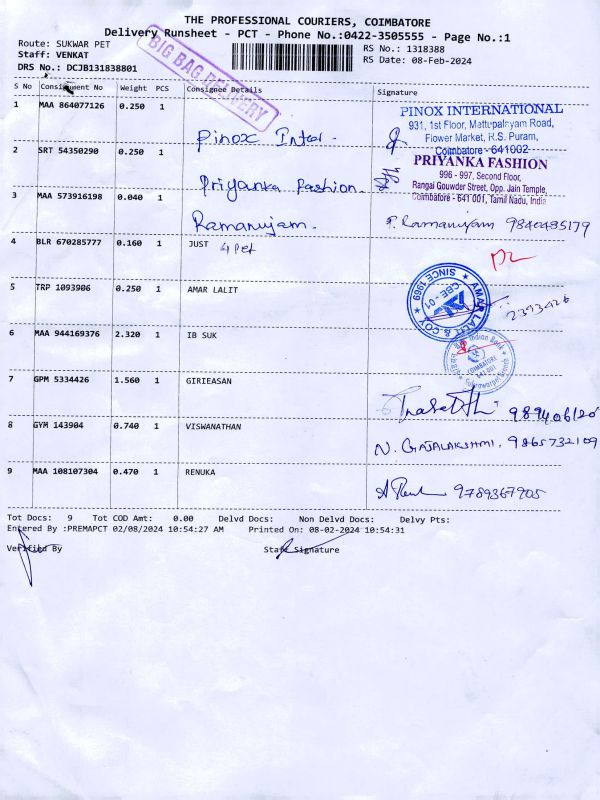 THE PROFESSIONAL COURIERS, COIMBATORE
Delivery Runsheet - PCT - Phone No.:0422-3505555 - Page No.:1
Route: SUKWAR PET
Staff: VENKAT
DRS No.: DCJB131838801
RS No.: 1318388
RS Date: 08-Feb-2024
BIG BAG DELIVERY
S No Consignment No Weight PCS Consignee Details Signature
1 MAA 864077126 0.250 1 Pinox Inter -
PINOX INTERNATIONAL
931, 1st Floor, Mattupalayam Road,
Flower Market, R.S. Puram,
Coimbatore - 641002
2 SRT 54350290 0.250 1 Priyanka Fashion.
PRIYANKA FASHION
996 - 997, Second Floor,
Rangai Gouwder Street, Opp. Jain Temple,
Coimbatore - 641 001, Tamil Nadu, India
3 MAA 573916198 0.040 1 Ramanujam.
P. Ramanujam 9840485179
4 BLR 670285777 0.160 1 JUST 4 Pet
5 TRP 1093906 0.250 1 AMAR LALIT
AMAR LALIT & COY
SINCE 1969
CBE - 01
2393426
6 MAA 944169376 2.320 1 IB SUK
Indian Bank
COIMBATORE
641 001
7 GPM 5334426 1.560 1 GIRIEASAN
8 GYM 143904 0.740 1 VISWANATHAN
N. GAJALAKSHMI, 9865732109
9 MAA 108107304 0.470 1 RENUKA
9789367905
Tot Docs: 9 Tot COD Amt: 0.00 Delvd Docs: Non Delvd Docs: Delvy Pts:
Entered By :PREMAPCT 02/08/2024 10:54:27 AM Printed On: 08-02-2024 10:54:31
Verified By Staff Signature